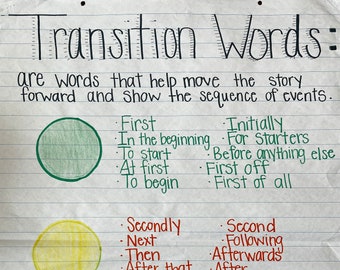 Transition Words:
are words that help move the story
forward and show the sequence of events.
· First · Initially
· In the beginning · For starters
· To start · Before anything else
· At first · First off
· To begin · First of all
· Secondly · Second
· Next · Following
· Then · Afterwards
· After that · After